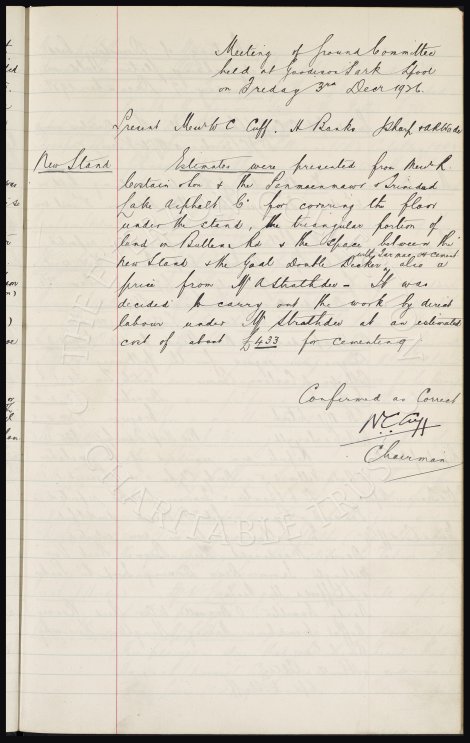 Meeting of Ground Committee
held at Goodison Park Lpool
on Friday 3rd Decr 1926.
Present Messrs W C Cuff. H Banks J Sharp &
New Stand Estimates were presented from Messrs R.
Costain & Son & the Penmaenmawr & Trinidad
Lake Asphalt Co for covering the floor
under the stand, the triangular portion of
land in Bullens Rd & the space between the
new Stand & the Goal Double Decker with Tarmac or cement also a
price from Mr A Strathdee - It was
decided to carry out the work by direct
labour under Mr Strathdee at an estimated
cost of about £433 for cementing
Confirmed as Correct
W.C. Cuff
Chairman
CHARITABLE TRUST